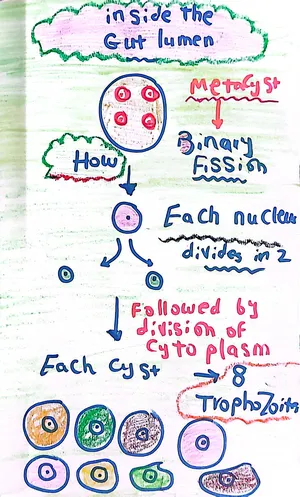 inside the
Gut lumen
Metacyst
Binary
Fission
How
Each nucleus
divides in 2
Followed by
division of
Cytoplasm
Each Cyst → 8
Trophozoites